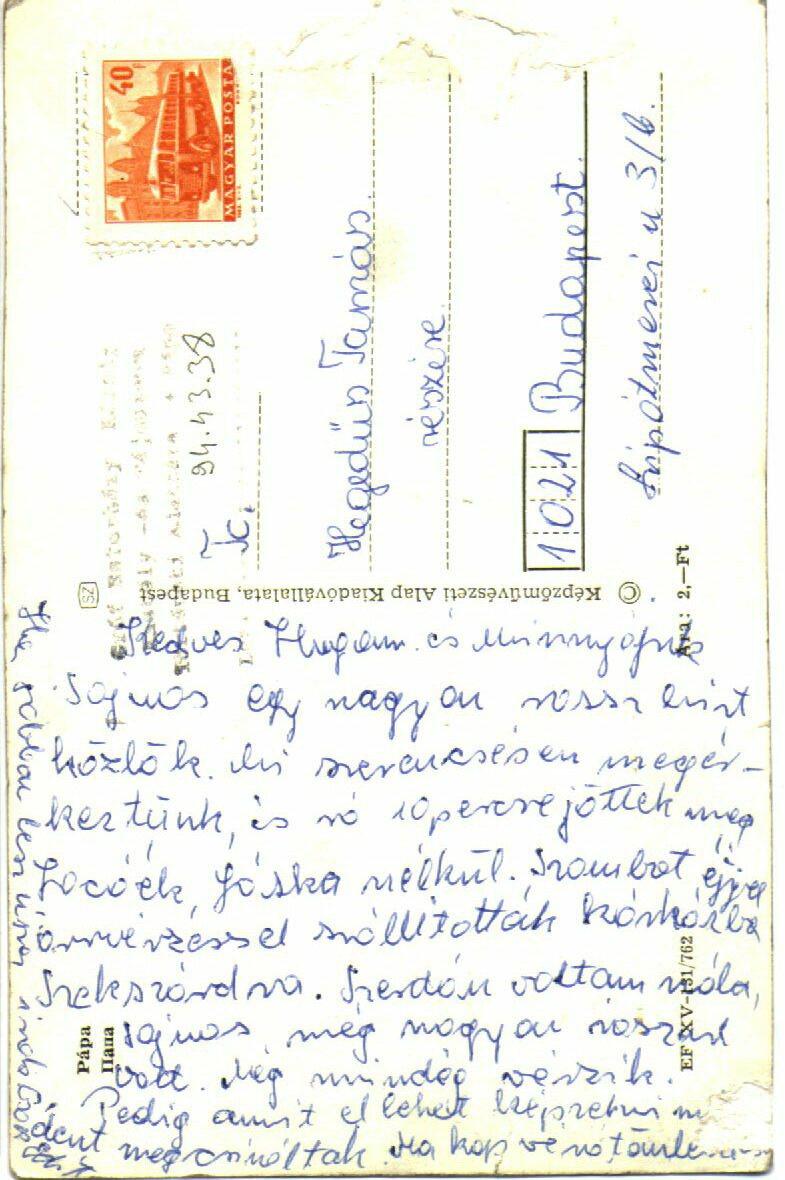 40
MAGYAR POSTA
94.43.38
Tc.
Hegedüs Tamás
részére
1021 Budapest.
Lipótmezei u 3/b.
SZ
Képzőművészeti Alap Kiadóvállalata, Budapest ©
Ára: 2,—Ft
Kedves Hugom és
Sajnos egy nagyon rossz hírt
közlök. Mi szerencsésen megér-
keztünk, és rá 10 percre jöttek meg
Jocóék, Jóska nélkül. Szombat éjjel
orrvérzéssel szállították kórházba
Szekszárdra. Szerdán voltam nála,
sajnos még nagyon rosszul
volt. Még mindég vérzik.
Pedig amit el lehet képzelni min
dent megcsináltak. Ma kap vérátömle
Ha jobban lesz
Pápa
Папа
EF XV-131/762